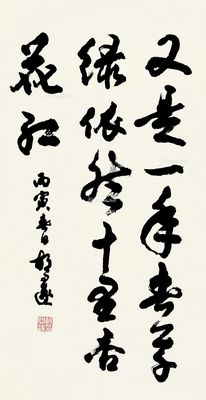 又是一年春草
绿依然十里杏
花红
丙寅春日胡问遂